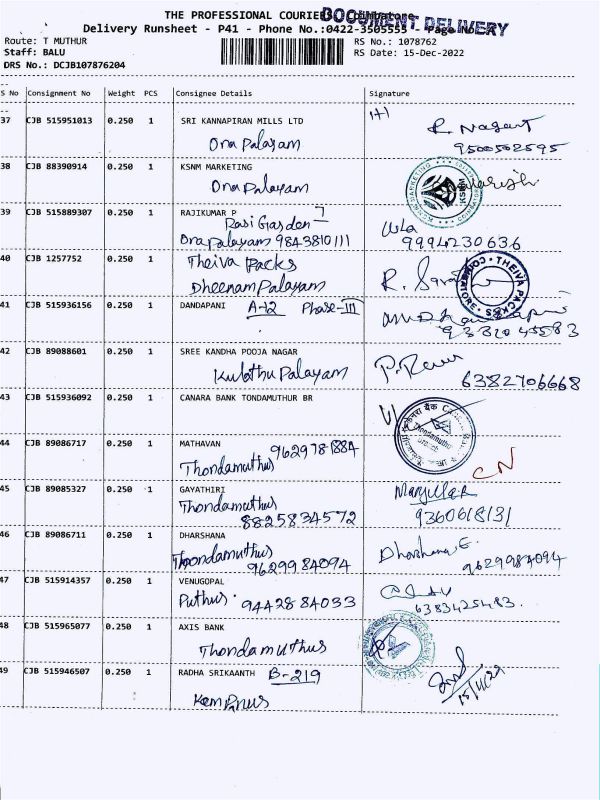 THE PROFESSIONAL COURIERS, Coimbatore
DOCUMENT DELIVERY
Delivery Runsheet - P41 - Phone No.:0422-3505555 - Page No
Route: T MUTHUR
RS No.: 1078762
Staff: BALU
RS Date: 15-Dec-2022
DRS No.: DCJB107876204
S No Consignment No Weight PCS Consignee Details Signature
37 CJB 515951013 0.250 1 SRI KANNAPIRAN MILLS LTD
Orapalayam
9500502595
38 CJB 88390914 0.250 1 KSNM MARKETING
Orapalayam
39 CJB 515889307 0.250 1 RAJIKUMAR P
Rasi Garden
Orapalayam 9843810111
9994230636
40 CJB 1257752 0.250 1 Theiva Packs
Dheenampalayam
THEIVA PACKS
41 CJB 515936156 0.250 1 DANDAPANI A-12 Phase-III
42 CJB 89088601 0.250 1 SREE KANDHA POOJA NAGAR
Kulathupalayam
6382706668
43 CJB 515936092 0.250 1 CANARA BANK TONDAMUTHUR BR
44 CJB 89086717 0.250 1 MATHAVAN 9629781884
Thondamuthur
CN
45 CJB 89085327 0.250 1 GAYATHIRI
Thondamuthur
8825834572
9360618131
46 CJB 89086711 0.250 1 DHARSHANA
Thondamuthur
9629984094
Dharshana.E.
9629984094
47 CJB 515914357 0.250 1 VENUGOPAL
Puthur. 9442884033
6383425483.
48 CJB 515965077 0.250 1 AXIS BANK
Thondamuthur
49 CJB 515946507 0.250 1 RADHA SRIKAANTH B-219